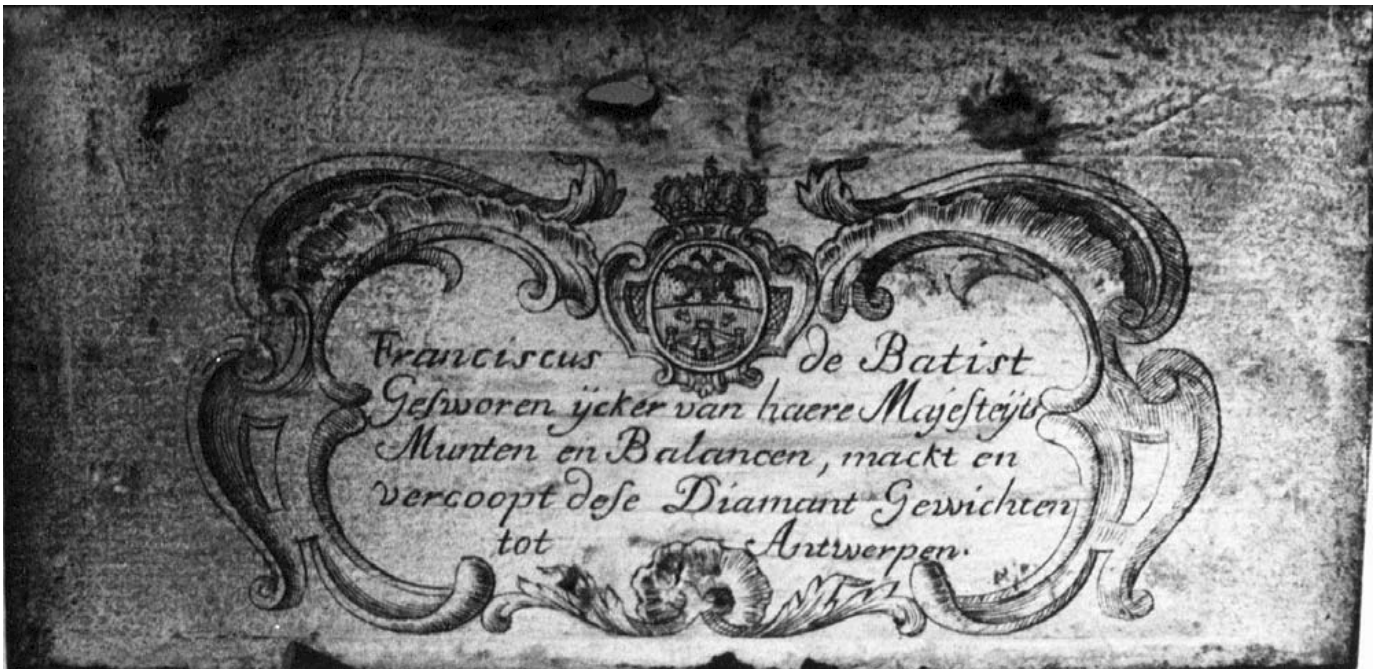 Franciscus de Batist
Gesworen ijcker van haere Majesteijts
Munten en Balancen, mackt en
vercoopt dese Diamant Gewichten
tot Antwerpen.